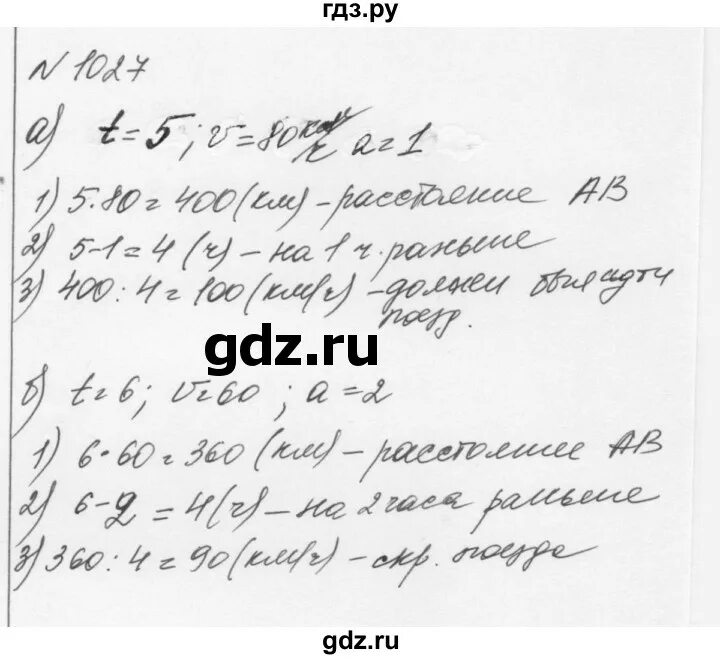 гдз.ру
N 1027
а) t=5; v=80 км/ч a=1
1) 5·80=400(км) - расстояние AB
2) 5-1=4 (ч) - на 1 ч. раньше
3) 400:4=100(км/ч) - должен был идти
поезд.
gdz.ru
б) t=6; v=60; a=2
1) 6·60=360(км) - расстояние AB
2) 6-2=4(ч) - на 2 часа раньше
3) 360:4=90(км/ч) - скр. поезда
gdz.ru